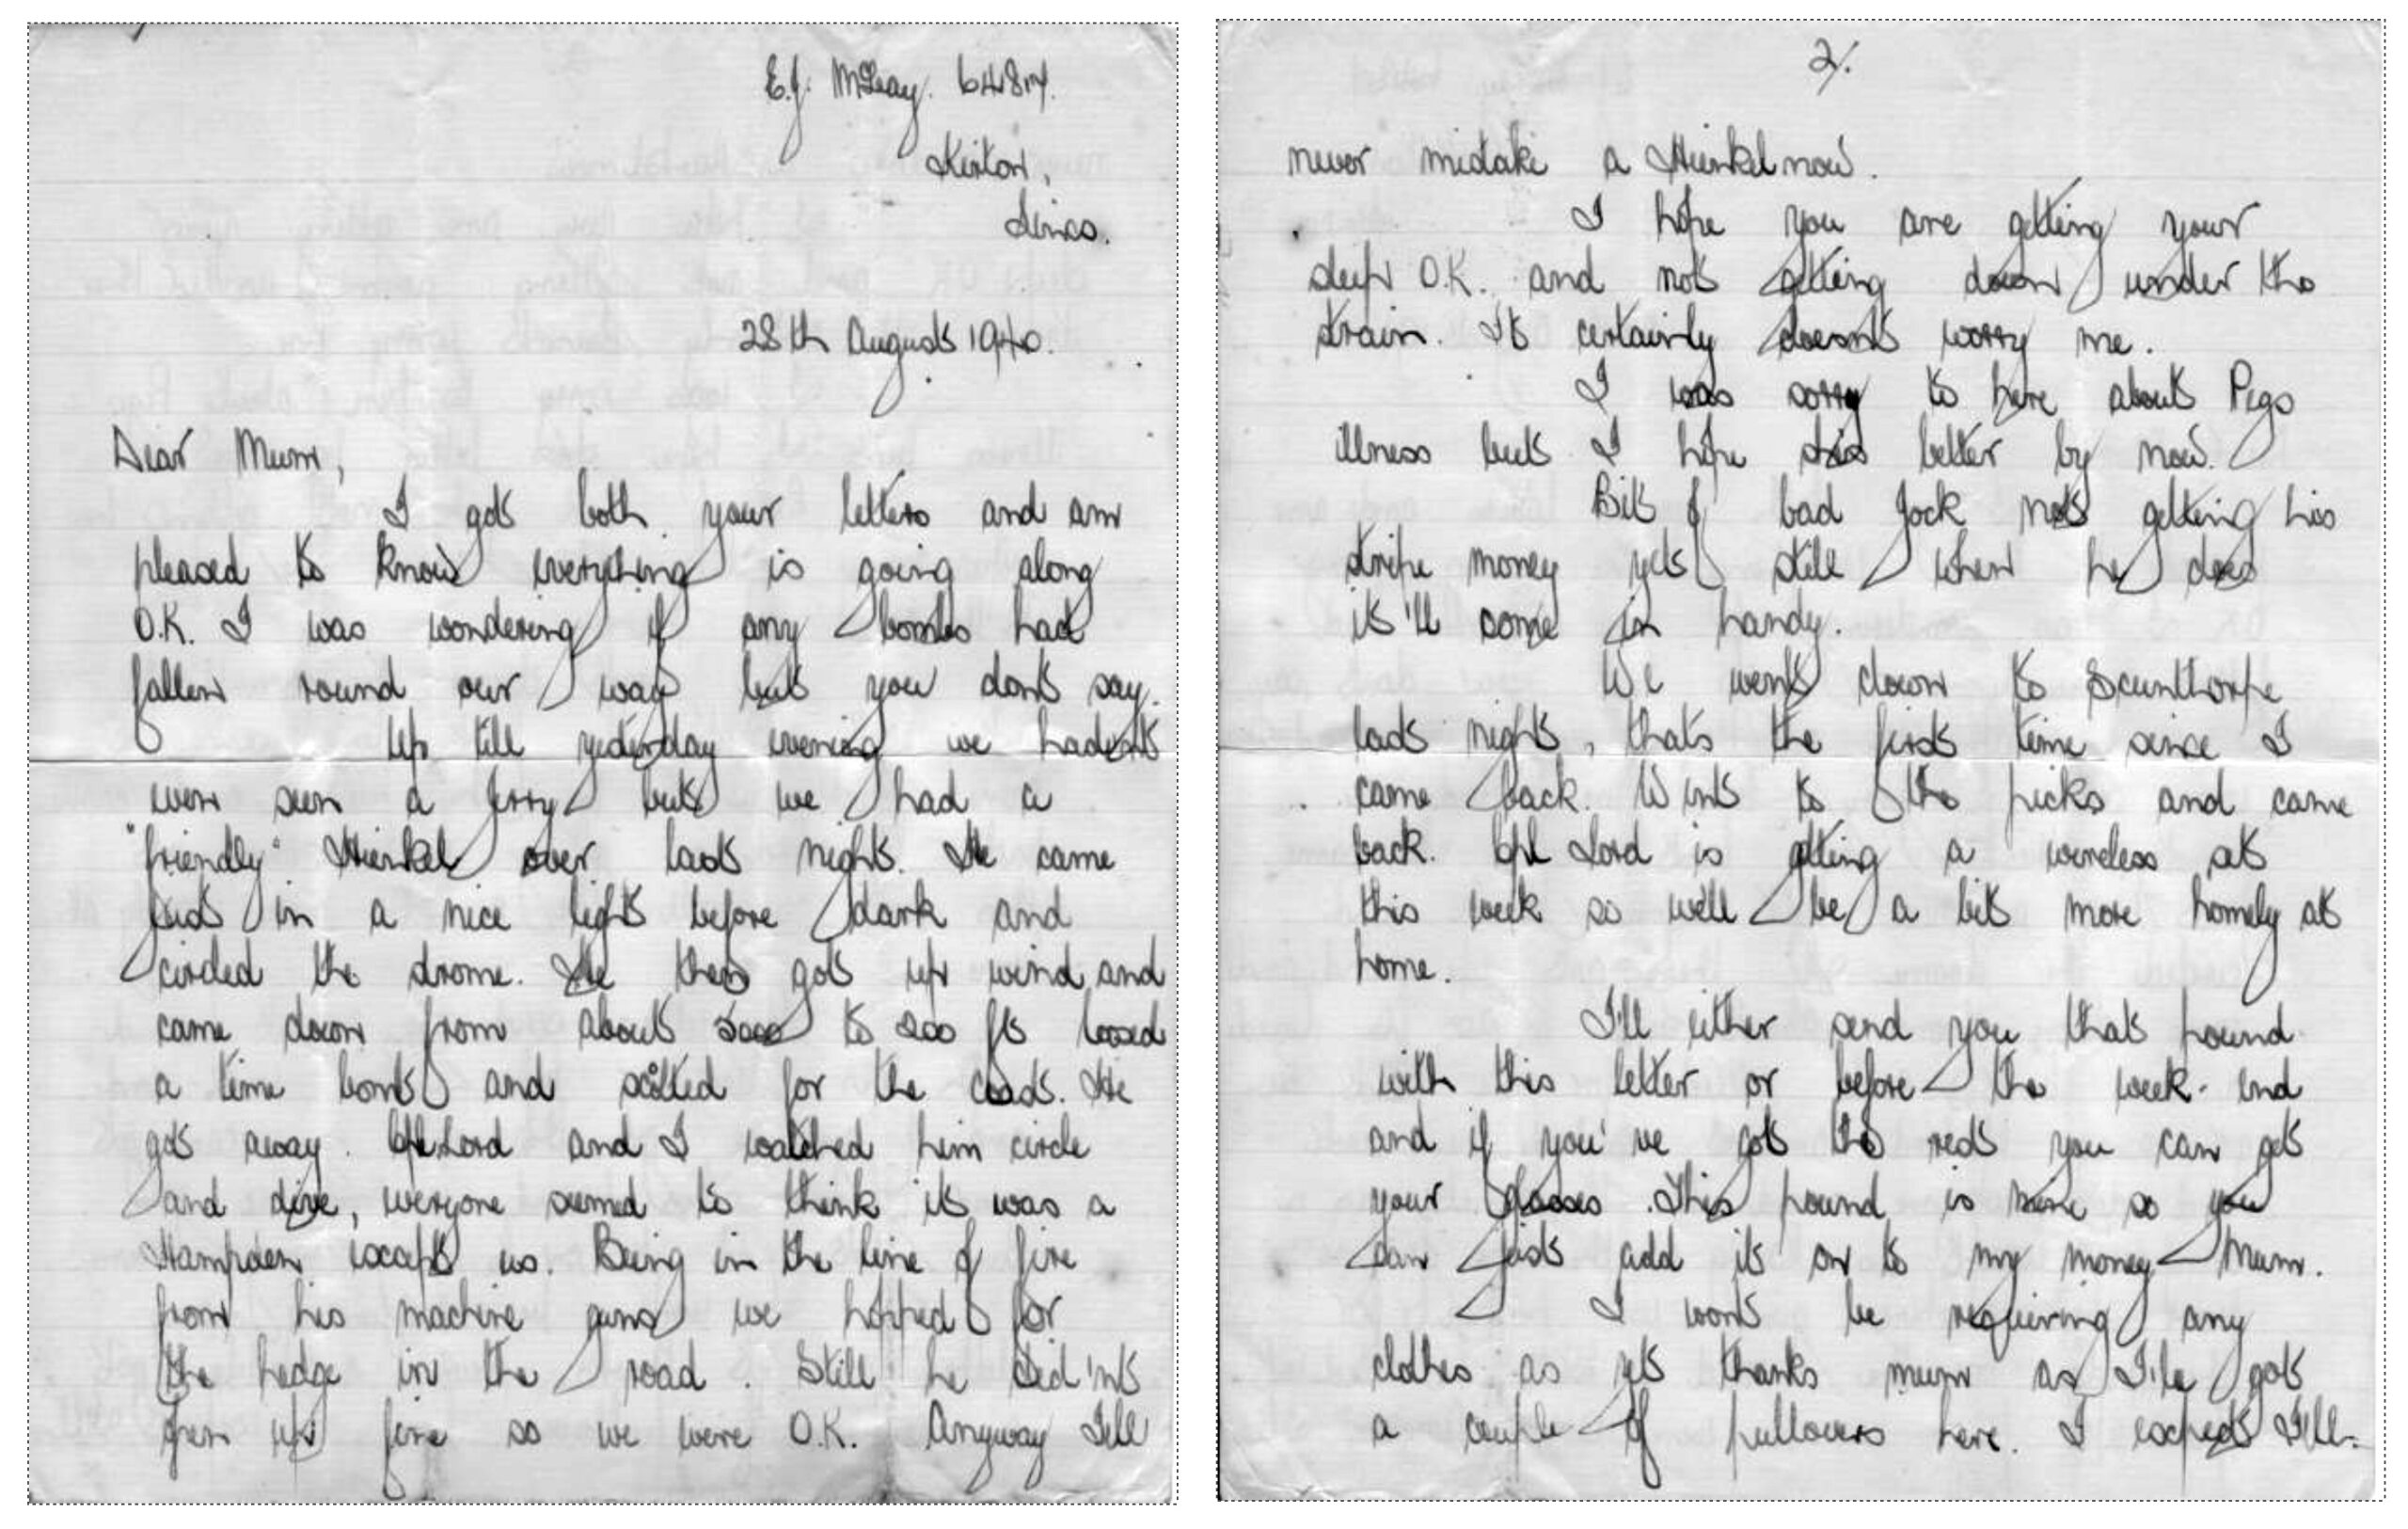 E.J. McLeay. 64817.
Kirton,
Lincs.
28th August 1940.
Dear Mum,
I got both your letters and am
pleased to know everything is going along
O.K. I was wondering if any bombs had
fallen round our way but you dont say.
Up till yesterday evening we hadent
even seen a Jerry but we had a
"friendly" Heinkel over last night. He came
just in a nice light before dark and
circled the drome. He then got up wind and
came down from about to 200 ft loosed
a time bomb and scitted for the coast. He
got away. Lord and I watched him circle
and dive, everyone seemed to think it was a
Hampden except us. Being in the line of fire
from his machine guns we hopped for
the hedge in the road. Still he did'nt
open up fire so we were O.K. Anyway I'll
2/.
never mistake a Heinkel now.
I hope you are getting your
sleep O.K. and not getting down under the
strain. It certainly doesnt worry me.
I was sorry to here about Pegs
illness but I hope shes better by now.
Bit of bad Jock not getting his
stripe money yet still when he does
it'll come in handy.
We went down to Scunthorpe
last night, thats the first time since I
came back. Went to the picks and came
back. Lord is getting a wireless set
this week so we'll be a bit more homely at
home.
I'll either send you that pound
with this letter or before the week-end
and if you've got the rest you can get
your glasses. This pound is mine so you
can just add it on to my money Mum.
I wont be requiring any
clothes as yet thanks mum as I've got
a couple of pullovers here. I expect I'll